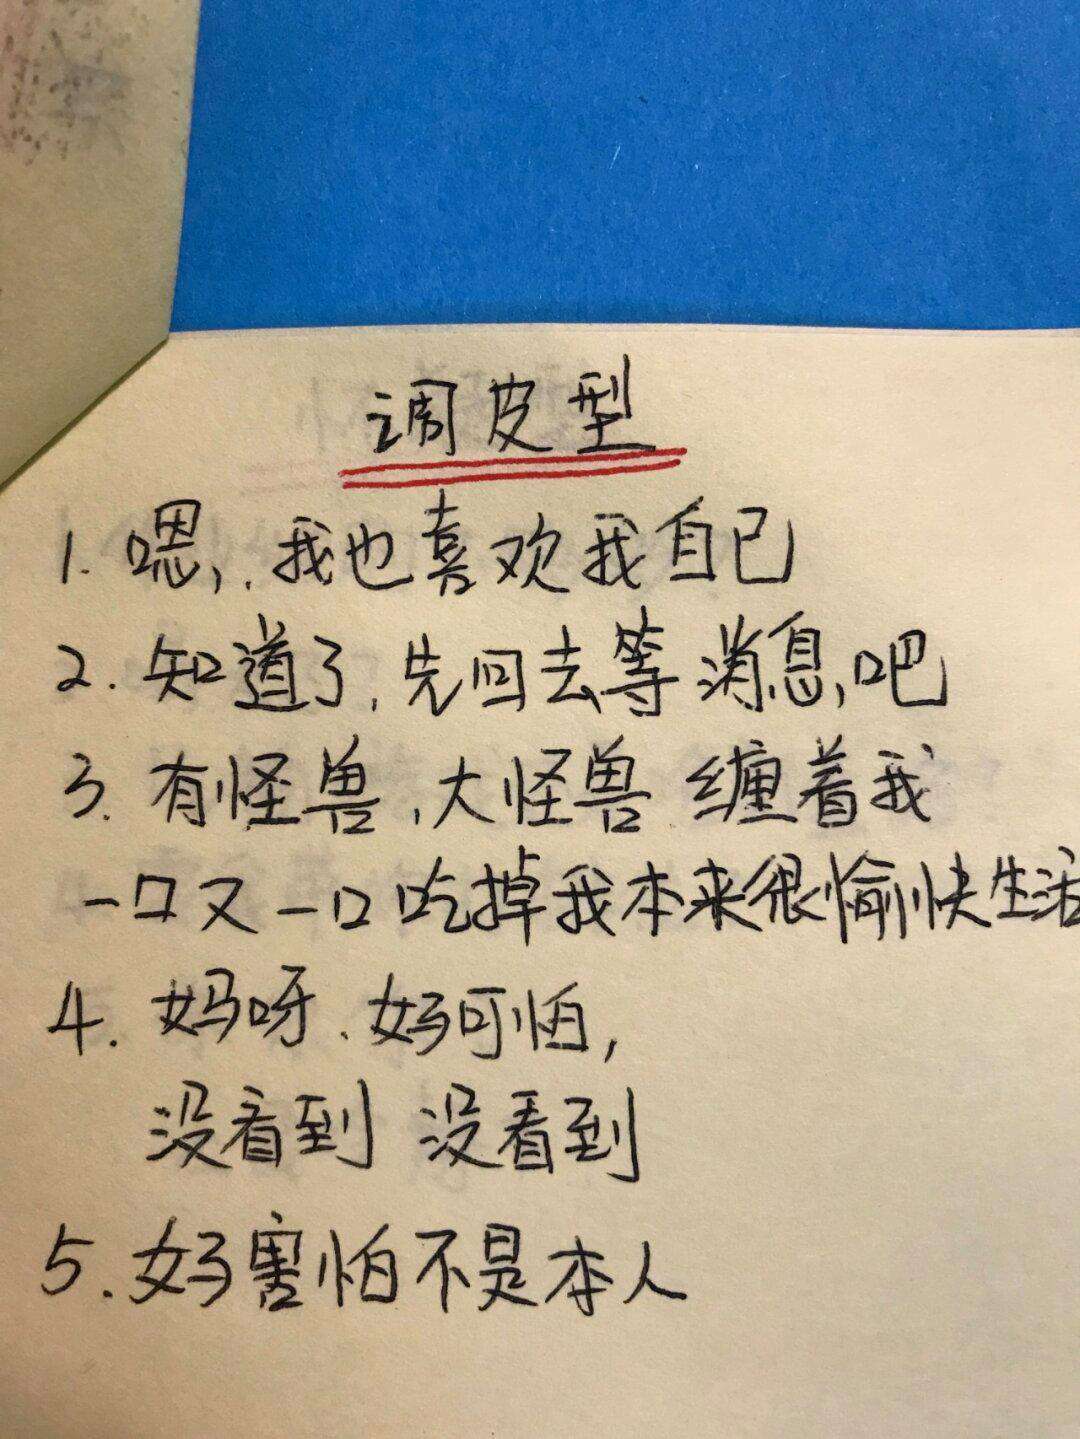 调皮型
1. 嗯,我也喜欢我自己
2. 知道了,先回去等消息吧
3. 有怪兽,大怪兽 缠着我
一口又一口吃掉我本来很愉快生活
4. 妈呀、妈可怕,
没看到 没看到
5. 妈害怕不是本人